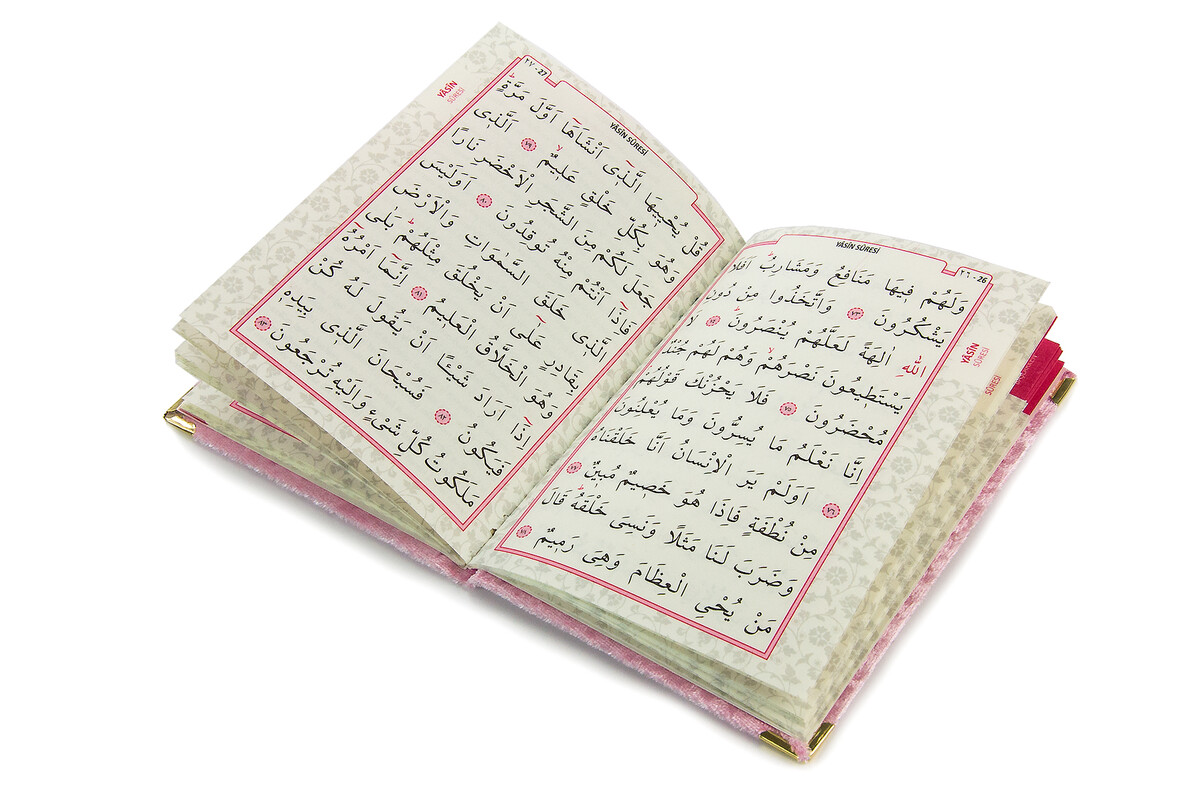 YÂSÎN SÛRESİ
٢٦ - 26
وَلَهُمْ فٖيهَا مَنَافِعُ وَمَشَارِبُ اَفَلَا
يَشْكُرُونَ ﴿٧٣﴾ وَاتَّخَذُوا مِنْ دُونِ
اللّٰهِ اٰلِهَةً لَعَلَّهُمْ يُنْصَرُونَ ﴿٧٤﴾ لَا
يَسْتَطٖيعُونَ نَصْرَهُمْ وَهُمْ لَهُمْ جُنْدٌ
مُحْضَرُونَ ﴿٧٥﴾ فَلَا يَحْزُنْكَ قَوْلُهُمْ
اِنَّا نَعْلَمُ مَا يُسِرُّونَ وَمَا يُعْلِنُونَ
﴿٧٦﴾ اَوَلَمْ يَرَ الْاِنْسَانُ اَنَّا خَلَقْنَاهُ
مِنْ نُطْفَةٍ فَاِذَا هُوَ خَصٖيمٌ مُبٖينٌ ﴿٧٧﴾
وَضَرَبَ لَنَا مَثَلًا وَنَسِىَ خَلْقَهُ قَالَ
مَنْ يُحْيِ الْعِظَامَ وَهِىَ رَمٖيمٌ ﴿٧٨﴾
YÂSÎN
SÛRESİ
SÛRESİ
٢٧ - 27
YÂSÎN SÛRESİ
قُلْ يُحْيٖيهَا الَّذٖٓى اَنْشَاَهَٓا اَوَّلَ مَرَّةٍ
وَهُوَ بِكُلِّ خَلْقٍ عَلٖيمٌ ﴿٧٩﴾ اَلَّذٖى
جَعَلَ لَكُمْ مِنَ الشَّجَرِ الْاَخْضَرِ نَارًا
فَاِذَٓا اَنْتُمْ مِنْهُ تُوقِدُونَ ﴿٨٠﴾ اَوَلَيْسَ
الَّذٖى خَلَقَ السَّمٰوَاتِ وَالْاَرْضَ
بِقَادِرٍ عَلٰٓى اَنْ يَخْلُقَ مِثْلَهُمْ بَلٰى
وَهُوَ الْخَلَّاقُ الْعَلٖيمُ ﴿٨١﴾ اِنَّمَٓا اَمْرُهُ
اِذَٓا اَرَادَ شَيْئًا اَنْ يَقُولَ لَهُ كُنْ
فَيَكُونُ ﴿٨٢﴾ فَسُبْحَانَ الَّذٖى بِيَدِهٖ
مَلَكُوتُ كُلِّ شَىْءٍ وَاِلَيْهِ تُرْجَعُونَ ﴿٨٣﴾
YÂSÎN
SÛRESİ